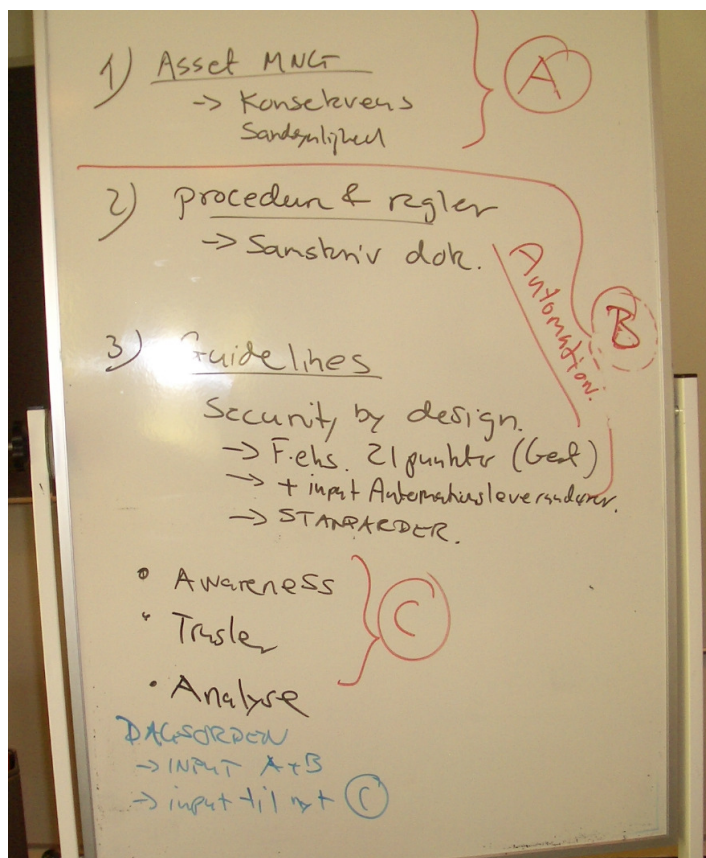 1) Asset MNGT
-> Konsekvens
Sandsynlighed
A
2) procedurer & regler
-> Samskriv dok.
Automation.
B
3) Guidelines
Security by design.
-> F.eks. 21 punkter (Gest)
-> + input Automationsleverandører.
-> STANDARDER.
• Awareness
• Trusler
• Analyse
C
DAGSORDEN
-> INPUT A+B
-> input til nyt C